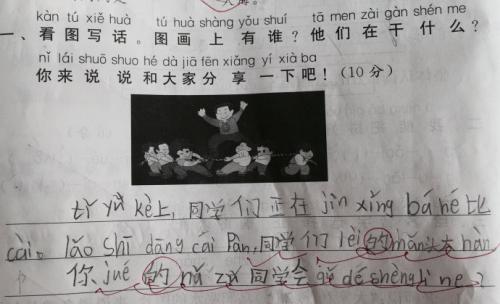 kàn tú xiě huà tú huà shàng yǒu shuí tā men zài gàn shén me
一、看图写话。图画上有谁？他们在干什么？
nǐ lái shuō shuo hé dà jiā fēn xiǎng yí xià ba
你来说说和大家分享一下吧！(10分)
tǐ yù kè上，同学们正在jìn xíng bá hé比
cài。lǎo shī dāng cái Pàn，同学们lèi的mǎn头大hàn
你jué的nǎ zǔ同学会gǔ dé shèng lì ne？